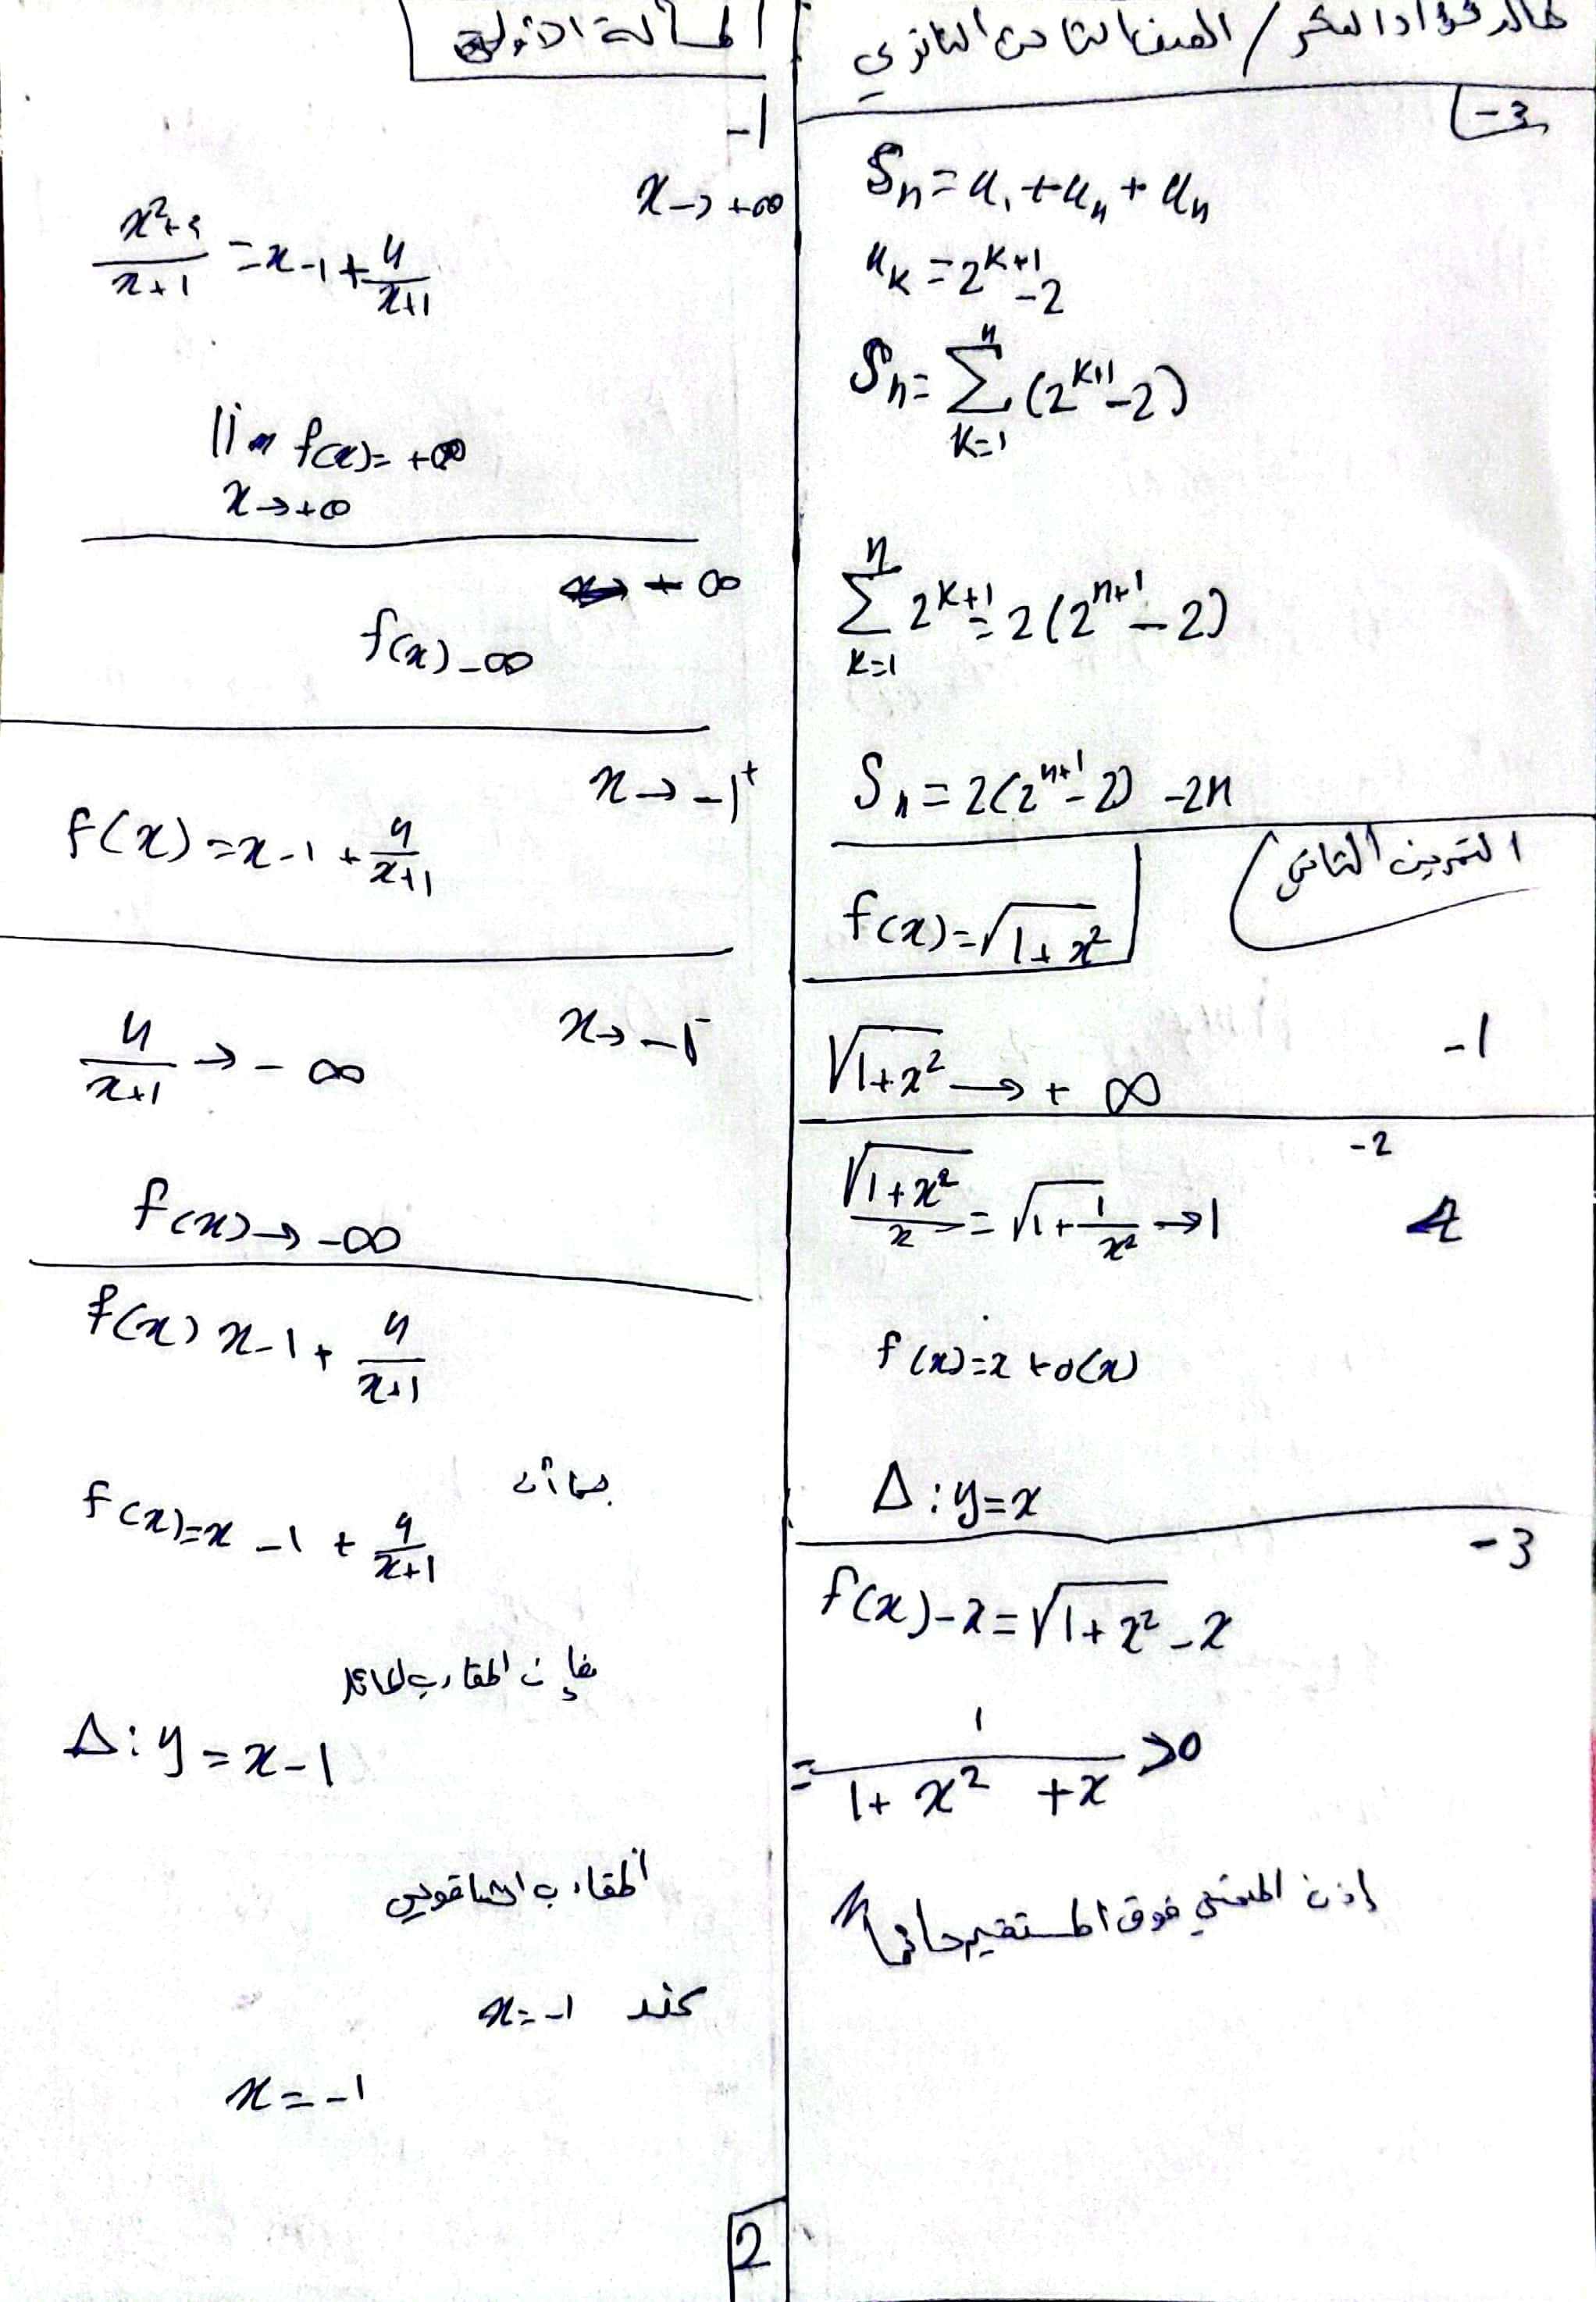 خالد فؤاد العكر / الصف الثالث الثانوي
-3
Sₙ = u₁ + uₙ + uₙ
uₖ = 2^(k+1) - 2
Sₙ = Σ_(k=1)^n (2^(k+1) - 2)
Σ_(k=1)^n 2^(k+1) = 2(2^(n+1) - 2)
Sₙ = 2(2^(n+1) - 2) - 2n
التمرين الثاني
f(x) = √(1+x²)
-1
√(1+x²) → + ∞
-2
√(1+x²)/x = √(1 + 1/x²) → 1
f(x) = x + o(x)
Δ : y = x
-3
f(x) - x = √(1+x²) - x
= 1/(1+x² +x) > 0
إذن المنحني فوق المستقيم دائما
المسألة الأولى
-1
x → +∞
(x²+3)/(x+1) = x - 1 + 4/(x+1)
lim f(x) = +∞
x → +∞
+ ∞
f(x) - ∞
x → -1⁺
f(x) = x - 1 + 4/(x+1)
x → -1⁻
4/(x+1) → - ∞
f(x) → -∞
f(x) x - 1 + 4/(x+1)
بما أن
f(x) = x - 1 + 4/(x+1)
فإن المقارب المائل
Δ : y = x - 1
المقارب الشاقولي
عند x = -1
x = -1
2